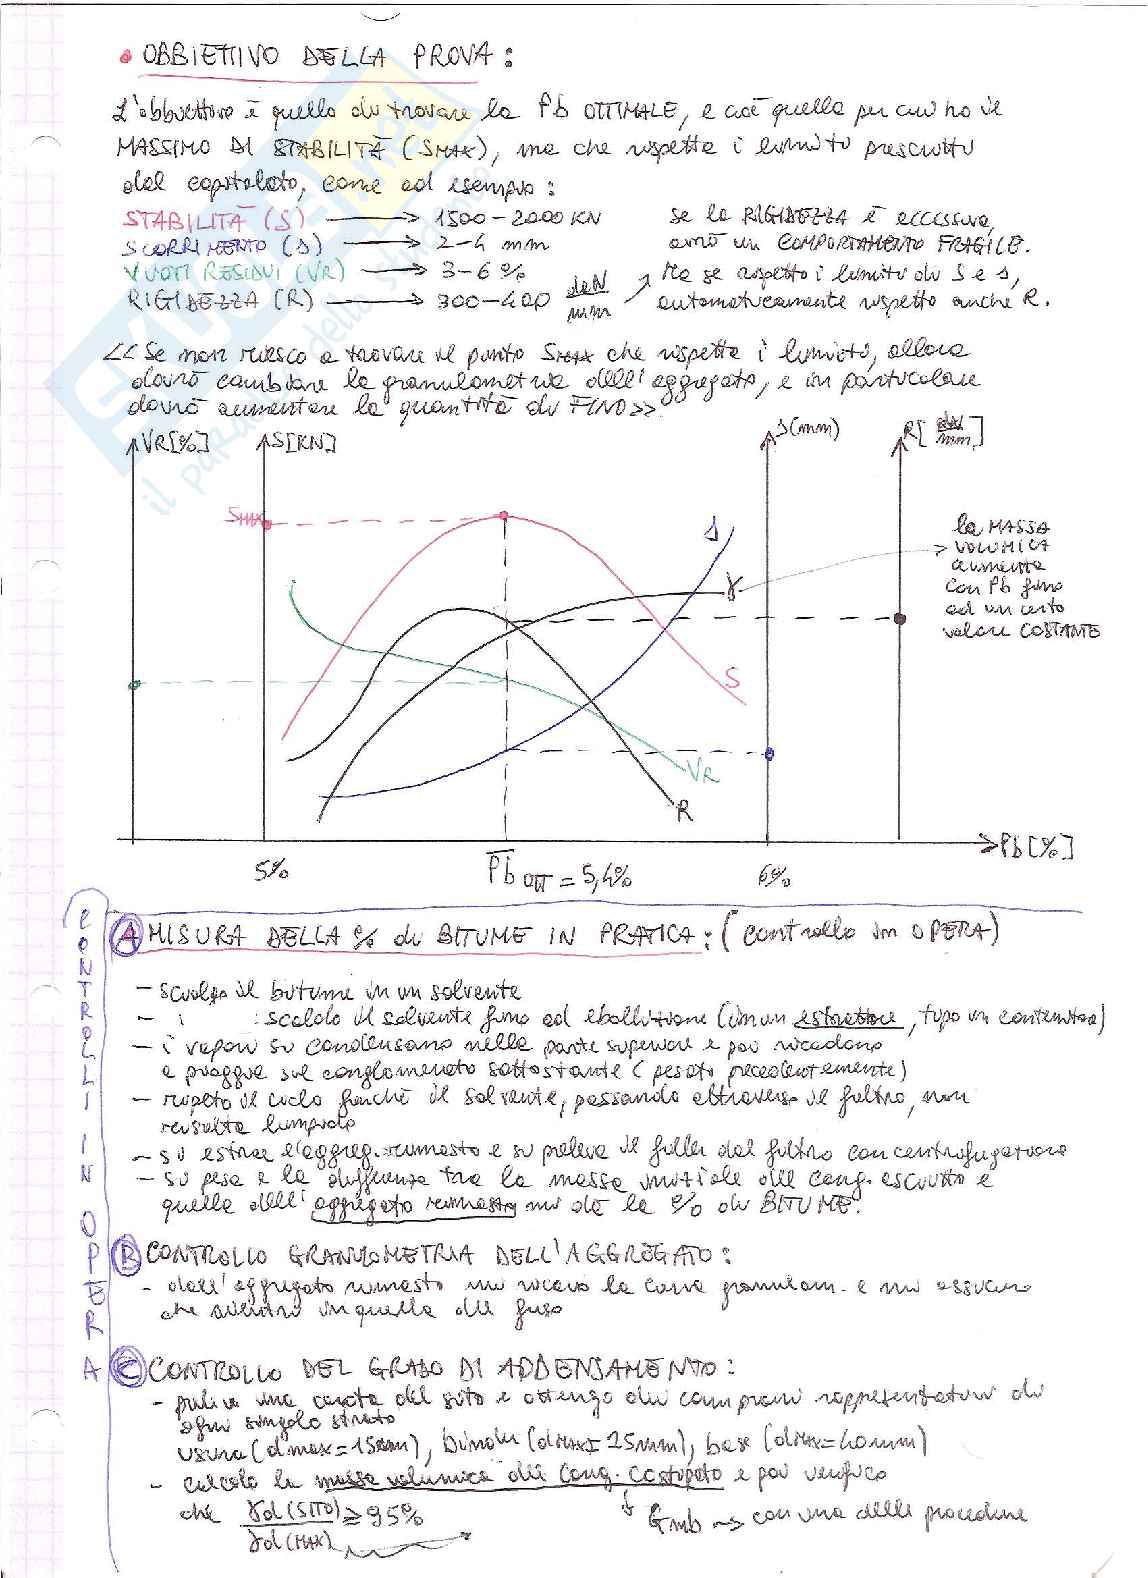 • OBBIETTIVO DELLA PROVA:
L'obbiettivo è quello di trovare la Pb OTTIMALE, e cioè quella per cui ho il
MASSIMO DI STABILITÀ (SMAX), ma che rispetta i limiti prescritti
dal capitolato, come ad esempio:
STABILITÀ (S) → 1500-2000 KN
SCORRIMENTO (s) → 2-4 mm
VUOTI RESIDUI (VR) → 3-6%
RIGIDEZZA (R) → 300-400 daN/mm
se la RIGIDEZZA è eccessiva,
avrò un COMPORTAMENTO FRAGILE.
Ma se rispetto i limiti di S e s,
automaticamente rispetto anche R.
<<Se non riesco a trovare il punto SMAX che rispetta i limiti, allora
dovrò cambiare la granulometria dell'aggregato, e in particolare
dovrò aumentare la quantità di FINO>>
VR[%] S[KN] s(mm) R[daN/mm]
SMAX
s
γ
S
VR
R
la MASSA
VOLUMICA
aumenta
con Pb fino
ad un certo
valore COSTANTE
5% Pb OTT = 5,4% 6% Pb[%]
CONTROLLI IN OPERA
A MISURA DELLA % di BITUME IN PRATICA: (controllo in OPERA)
- sciolgo il bitume in un solvente
- scaldo il solvente fino ad ebollizione (in un estrattore, tipo un contenitore)
- i vapori si condensano nella parte superiore e poi ricadono
a pioggia sul conglomerato sottostante (pesato precedentemente)
- ripeto il ciclo finché il solvente, passando attraverso il filtro, non
risulta limpido
- si estrae l'aggreg. rimasto e si preleva il filler dal filtro con centrifugazione
- si pesa e la differenza tra la massa iniziale del cong. asciutto e
quella dell'aggregato rimasto mi dà la % di BITUME.
B CONTROLLO GRANULOMETRIA DELL'AGGREGATO:
- dall'aggregato rimasto mi ricavo la curva granulom. e mi assicuro
che rientri in quella del fuso
C CONTROLLO DEL GRADO DI ADDENSAMENTO:
- prelievo una carota dal sito e ottengo dei campioni rappresentativi di
ogni singolo strato
usura (dmax=15mm), binder (dMAX=25mm), base (dMAX=40mm)
- calcolo la massa volumica del cong. costipato e poi verifico
che γd(SITO)/γd(MAX) ≥ 95%
Gmb ~> con una delle procedure
il paradiso dello studente